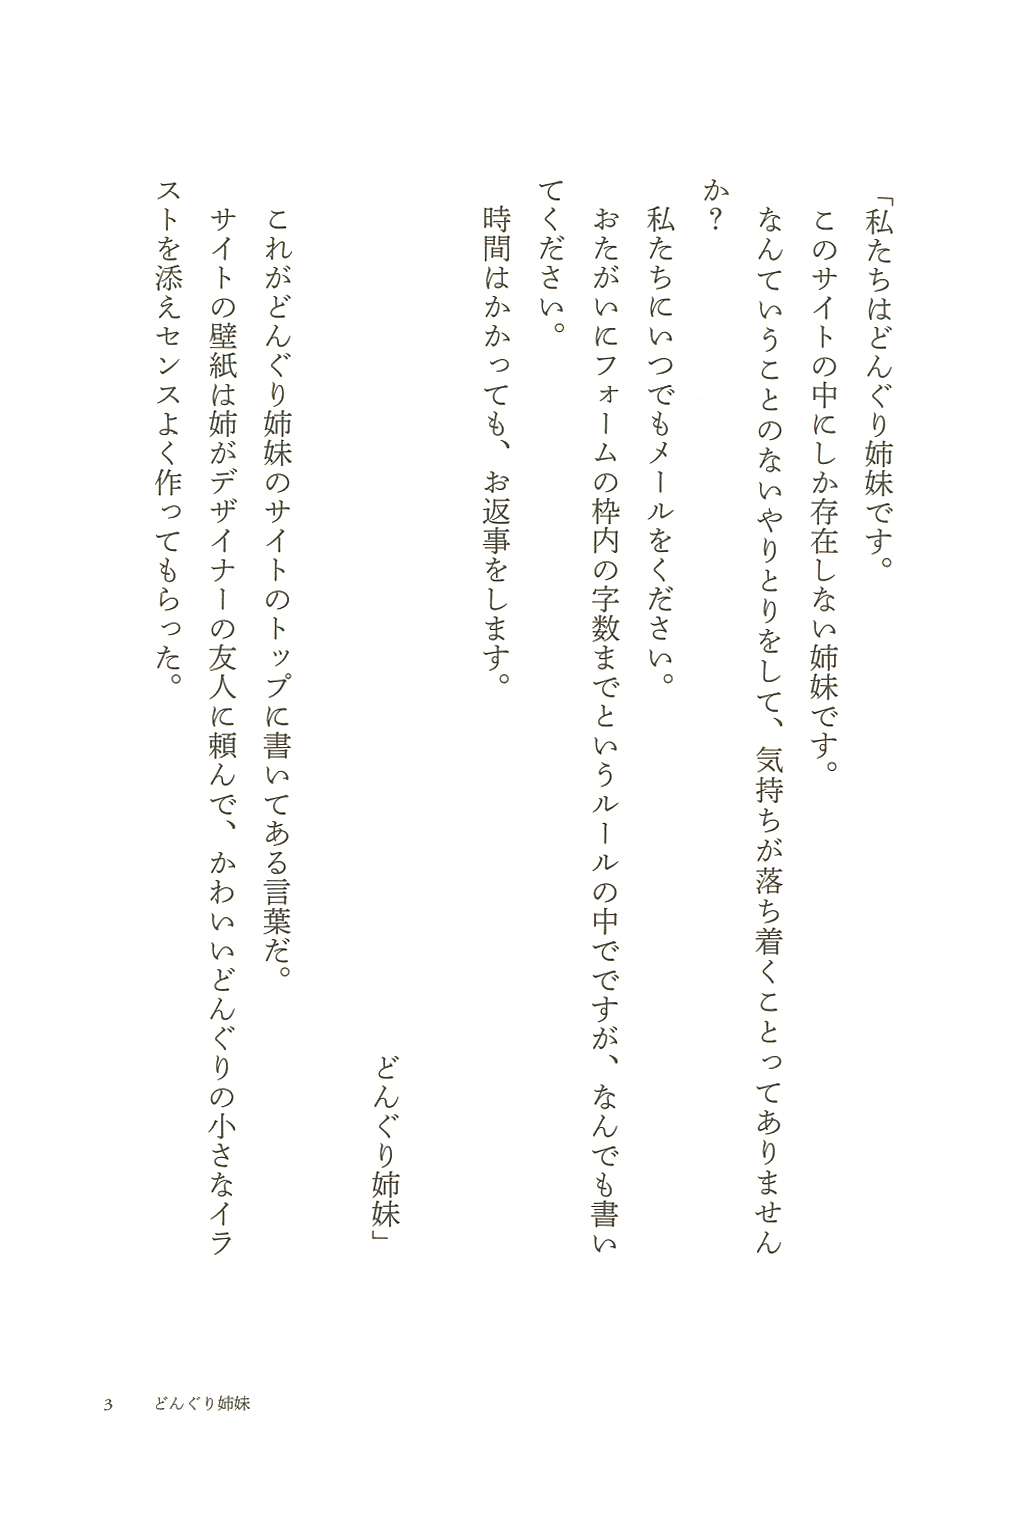 「私たちはどんぐり姉妹です。
このサイトの中にしか存在しない姉妹です。
なんていうことのないやりとりをして、気持ちが落ち着くことってありません
か？
私たちにいつでもメールをください。
おたがいにフォームの枠内の字数までというルールの中でですが、なんでも書い
てください。
時間はかかっても、お返事をします。
どんぐり姉妹」
これがどんぐり姉妹のサイトのトップに書いてある言葉だ。
サイトの壁紙は姉がデザイナーの友人に頼んで、かわいいどんぐりの小さなイラ
ストを添えセンスよく作ってもらった。
3 どんぐり姉妹